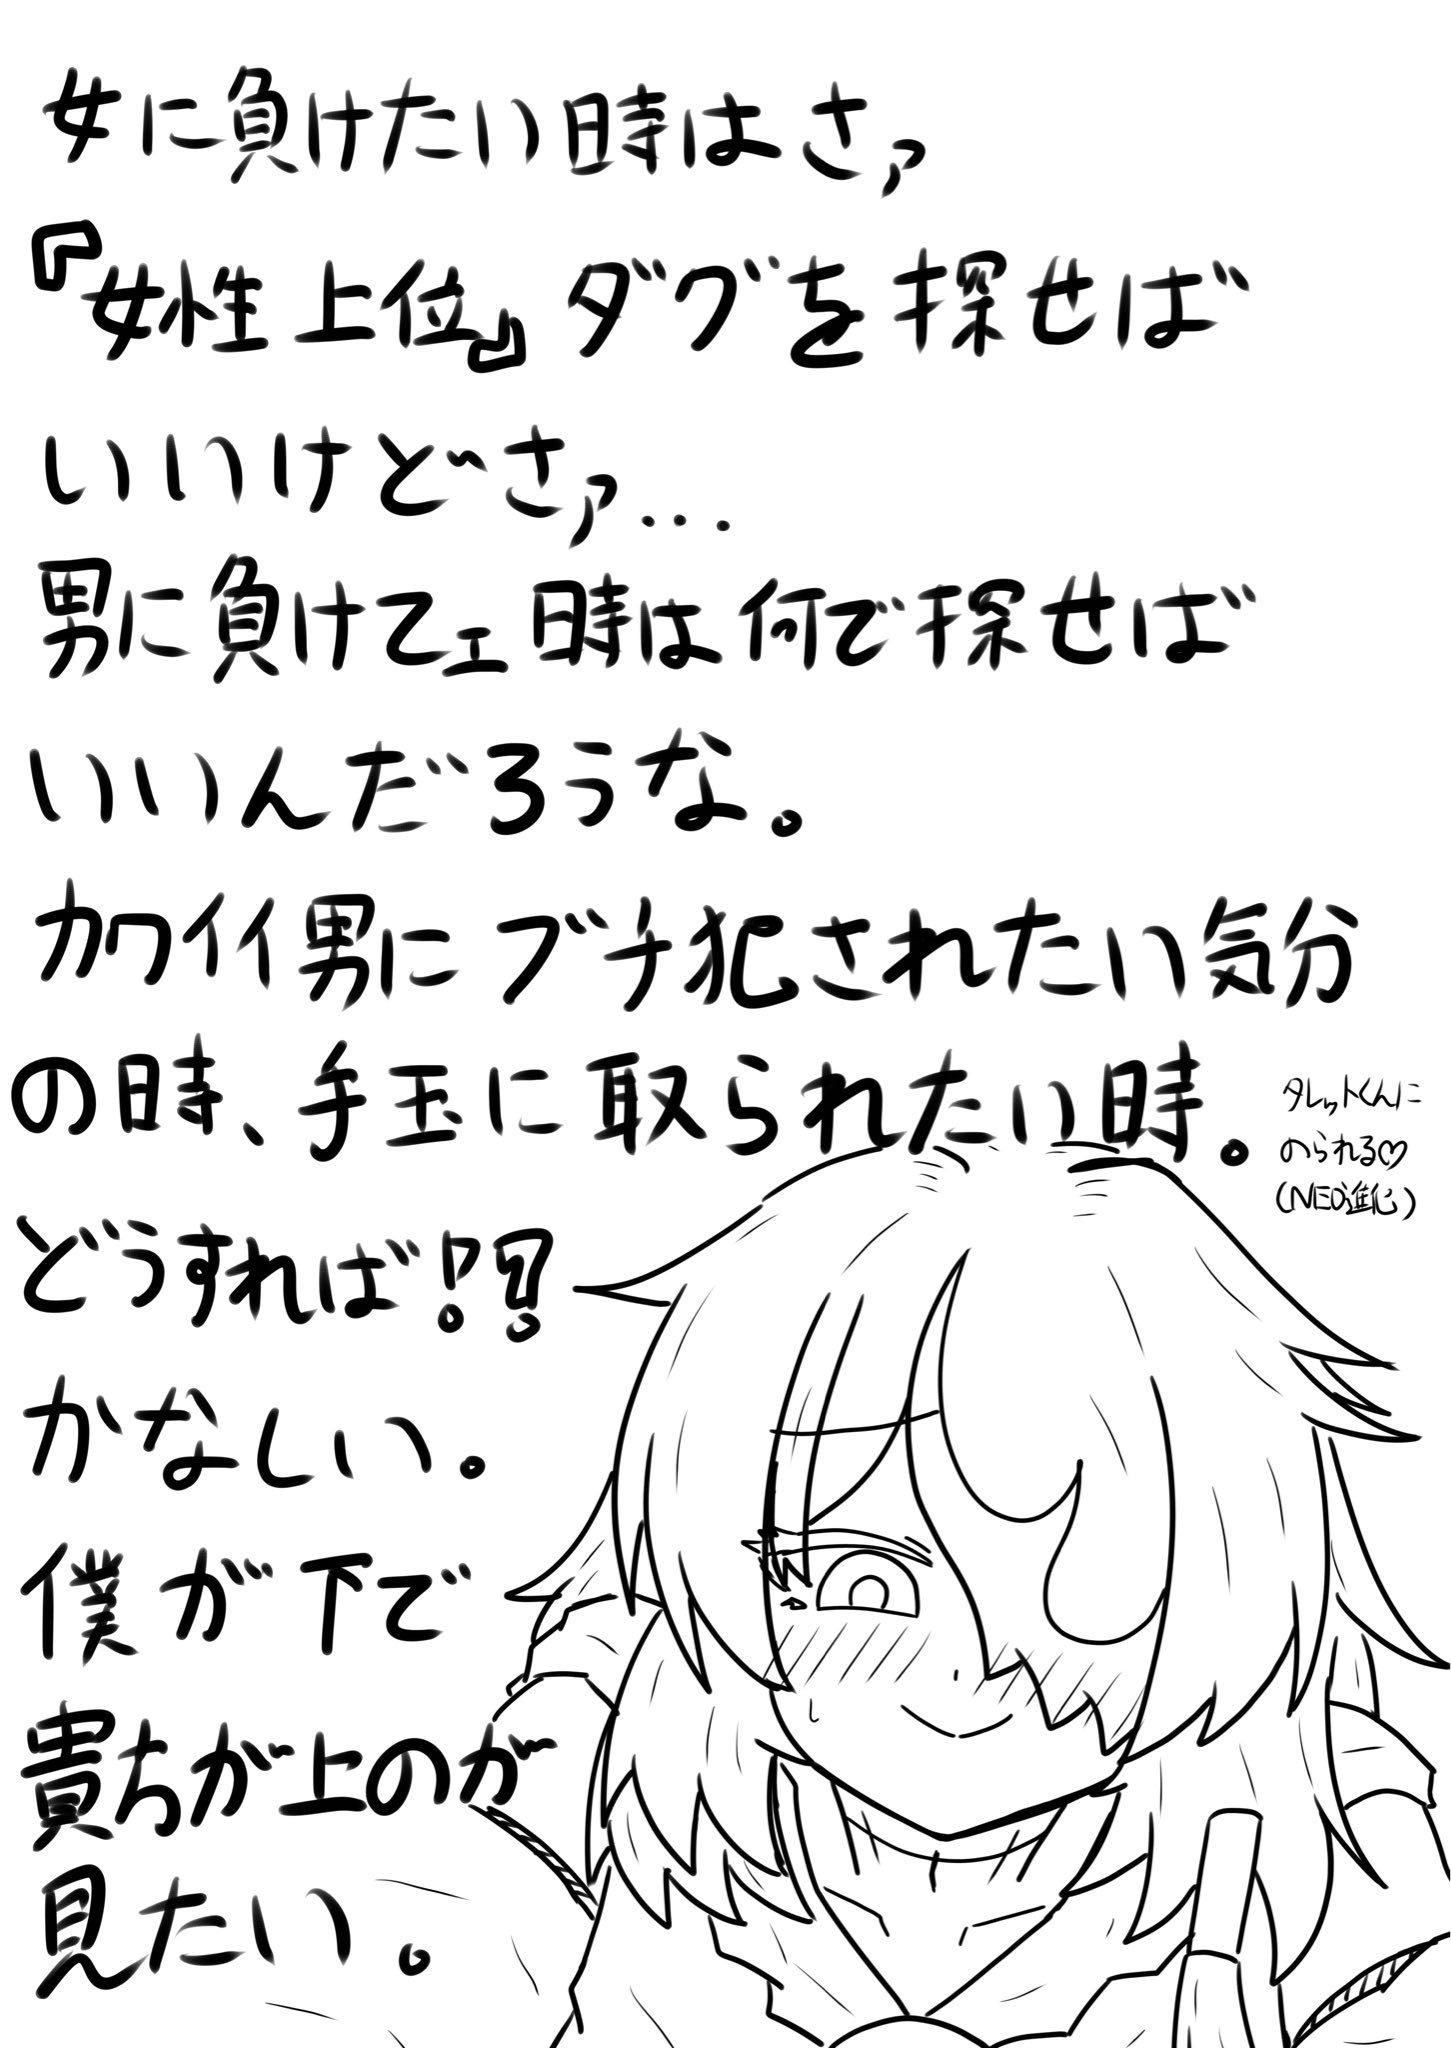 女に負けたい時はさァ
『女性上位』タグを探せば
いいけどさァ...
男に負けてェ時は何で探せば
いいんだろうな。
カワイイ男にブチ犯されたい気分
の時、手玉に取られたい時。
タレットくんに
のられる♡
(NEO進化)
どうすれば!?
かなしい。
僕が下で
貴方が上のが
見たい。